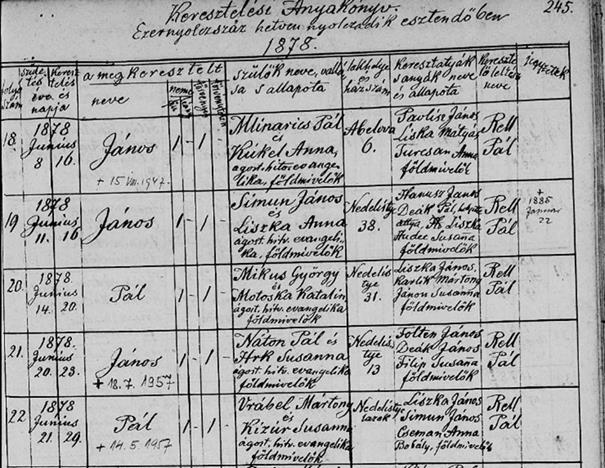 Keresztelési Anyakönyv. 245.
Ezernyolczszáz hetven nyolczadik esztendőben
1878.
folyó szám
születés és keresztelés éve és napja
a megkeresztelt
neve
neme
Szülők neve, vallása s állapota
lakhelye és házszám
Keresztatyák s anyák neve és állapota
Keresztelő lelkész neve
18. 1878 Junius 8 16.
János
+ 15 VIII. 1947.
1 - 1
Mlinarics Pál
és
Kükel Anna,
ágost. hitv. evangelika, földmivelők
Abelova
6.
Pavlisz János
Liska Mátyás
Turcsan Anna
földmivelők
Rell
Pál
19. 1878 Junius 11. 16
János
1 - 1
Simun János
és
Liszka Anna
ágost. hitv. evangelika, földmivelők
Nedelistye
38.
Hanusz János
Deák Pál,
Liszka
Hudec Susaña
földmivelők
Rell
Pál
+
1886
Januar
22
20. 1878. Junius 14. 20.
Pál
1 - 1
Mikus György
és
Motoska Katalin
ágost. hitv. evangelika
földmivelők
Nedelistye
31.
Liszka János,
Karlik Mártony
Jánon Susanna
földmivelők
Rell
Pál
21. 1878. Junius 20. 23.
János
+ 18. 7. 1957
1 - 1
Náton Pál és
Hrk Susanna
ágost. hitv. evangelika
földmivelők
Nedelistye
13
Folten János
Deák János,
Filip Susaña
földmivelők
Rell
Pál
22 1878 Junius 21. 29.
Pál
+ 14. 5. 1957
1 - 1
Vrábel Mártony
és
Kizúr Susanna
ágost. hitv. evangelika
földmivelők
Nedelistye
Liszka János
Simun János
Cseman Anna
földmivelők
Rell
Pál